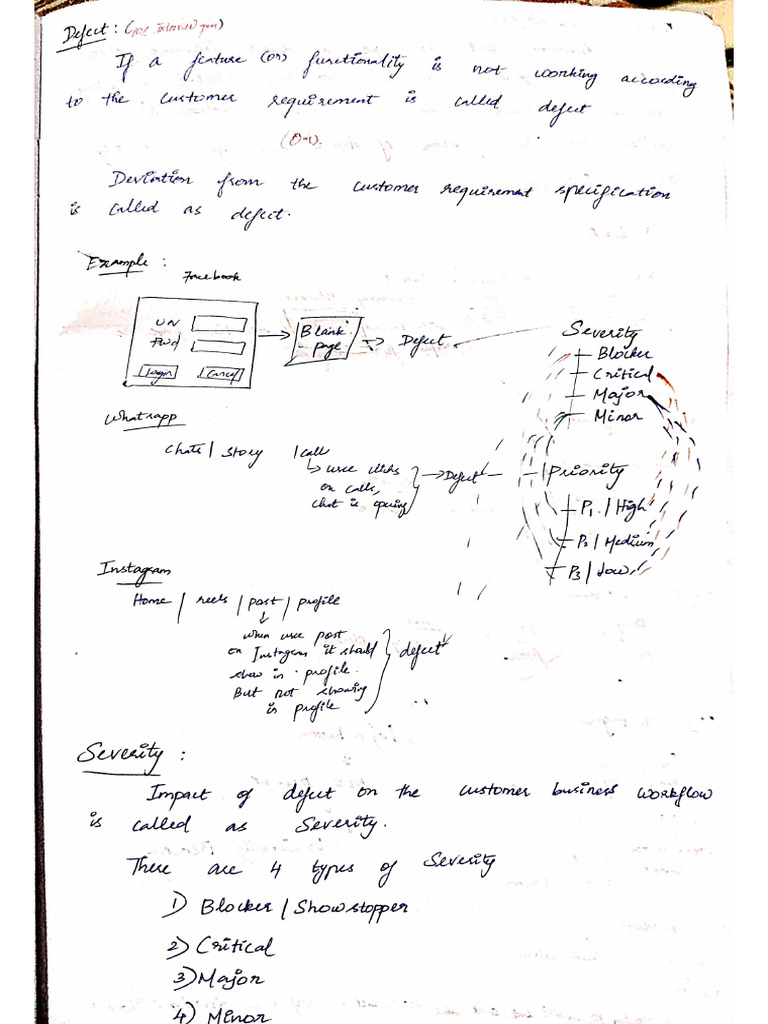 Defect : (for Interview ques)
If a feature (or) functionality is not working according
to the customer requirement is called defect
(Or).
Deviation from the customer requirement specification
is called as defect.
Example :
Facebook
UN
Pwd
Login Cancel
Blank page
Defect.
Severity
Blocker
Critical
Major
Minor
Whatsapp
Chats / Story / Call
user clicks
on calls,
chat is opening
Defect
Priority
P1 / High
P2 / Medium
P3 / Low
Instagram
Home / reels / post / profile
when use post
on Instagram it should
show in profile.
But not showing
in profile
defect
Severity :
Impact of defect on the customer business workflow
is called as Severity.
There are 4 types of Severity
1) Blocker / Showstopper
2) Critical
3) Major
4) Minor